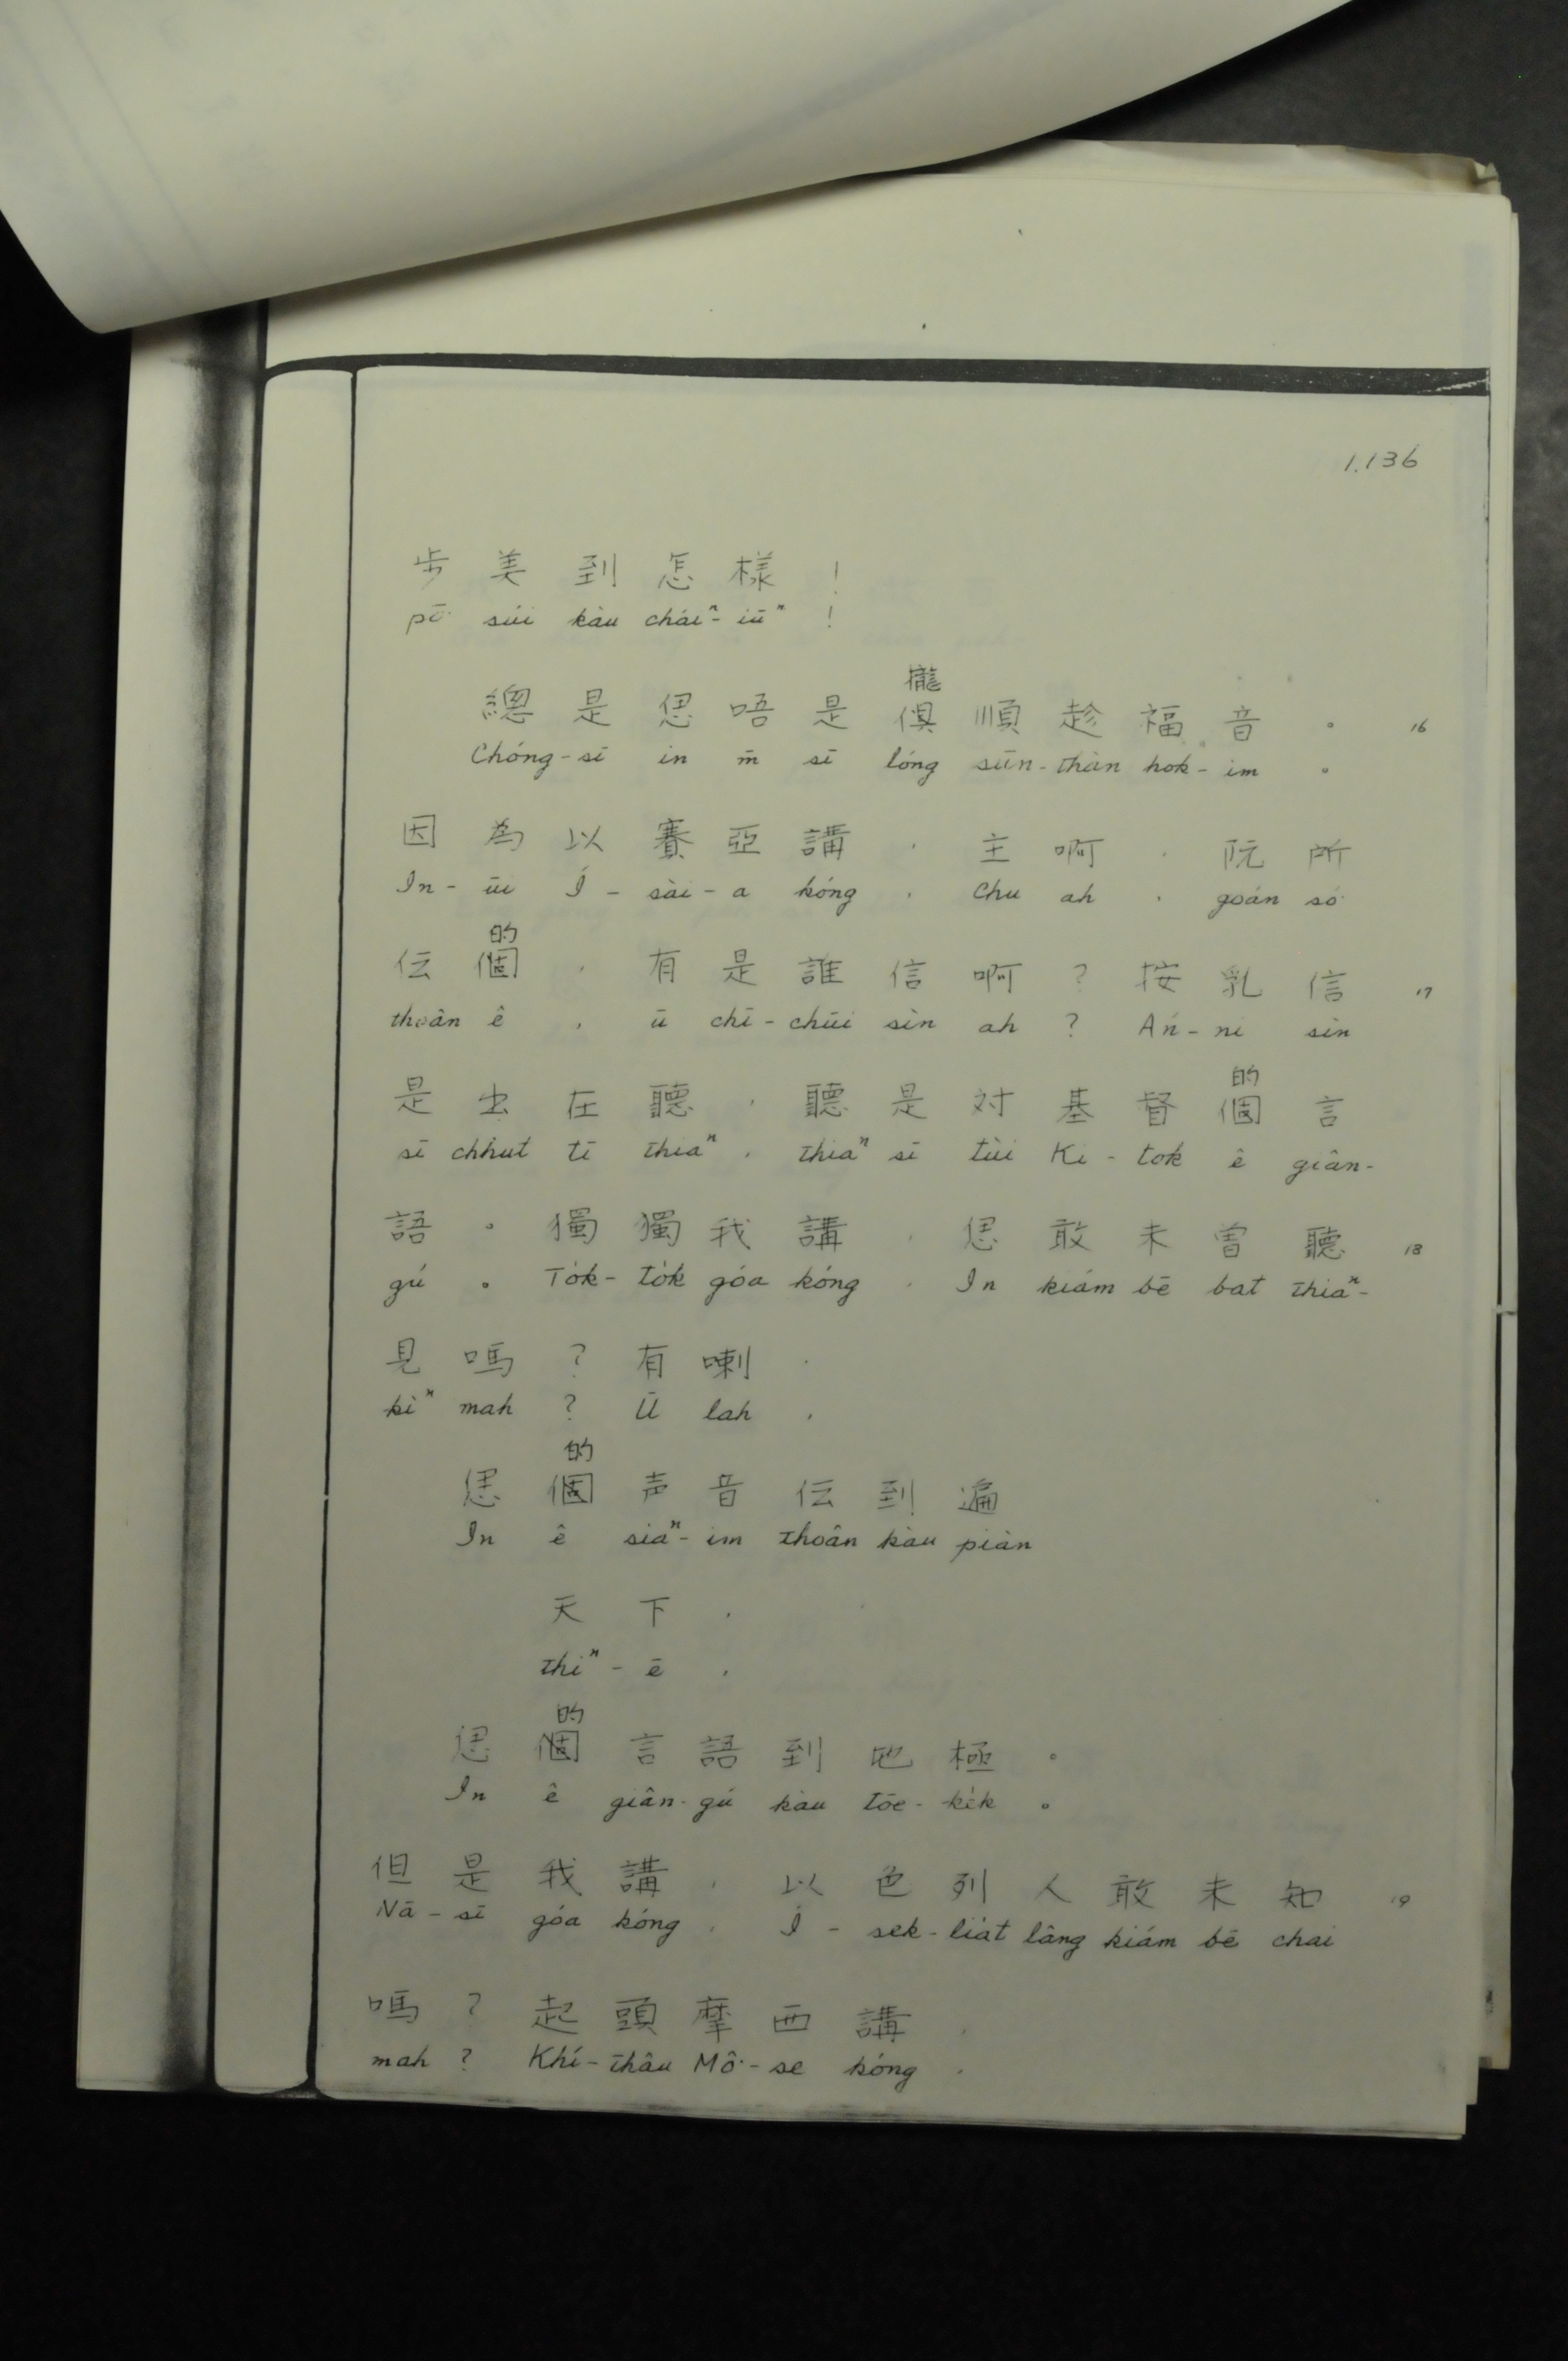 1.136
步美到怎樣！
pō͘ súi kàu cháiⁿ-iūⁿ !
攏
總是偲唔是俱順趁福音。 16
Chóng-sī in m̄ sī lóng sūn-thàn hok-im 。
因為以賽亞講，主啊，阮所
In-ūi Í-sài-a kóng , Chu ah , goán só͘
的
伝個，有是誰信啊？按乳信 17
thoân ê , ū chī-chūi sìn ah ? Án-ni sìn
的
是出在聽，聽是対基督個言
sī chhut tī thiaⁿ , thiaⁿ sī tùi Ki-tok ê giân-
語。獨獨我講，偲敢未曾聽 18
gú 。 To̍k-to̍k góa kóng , In kiám bē bat thiaⁿ-
見嗎？有喇，
kìⁿ mah ? Ū lah ,
的
偲個声音伝到遍
In ê siaⁿ-im thoân kàu piàn
天下，
thiⁿ-ē ,
的
偲個言語到地極。
In ê giân-gú kàu tōe-ke̍k 。
但是我講，以色列人敢未知 19
Nā-sī góa kóng , Í-sek-lia̍t lâng kiám bē chai
嗎？起頭摩西講，
mah ? Khí-thâu Mô͘-se kóng ,